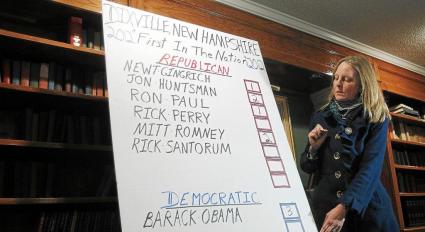 DIXVILLE, NEW HAMPSHIRE
First In The Nation
REPUBLICAN
NEWT GINGRICH
JON HUNTSMAN
RON PAUL
RICK PERRY
MITT ROMNEY
RICK SANTORUM
DEMOCRATIC
BARACK OBAMA 3